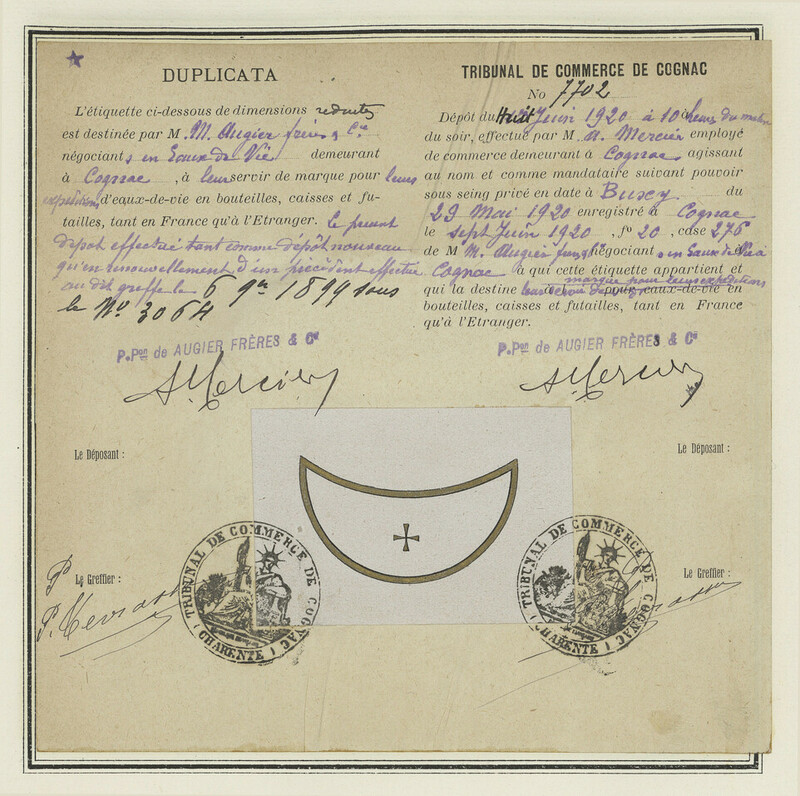 DUPLICATA
L'étiquette ci-dessous de dimensions reduites
est destinée par M. M. Augier frères & Cie
négociants en Eaux de Vie demeurant
à Cognac, à leur servir de marque pour leurs
expéditions d'eaux-de-vie en bouteilles, caisses et fu-
tailles, tant en France qu'à l'Etranger. Le présent
dépot effectué tant comme dépôt nouveau
qu'en renouvellement d'un précédent effectué
au dit greffe le 6 9bre 1899 sous
le No 3064
P. Pon de AUGIER FRÈRES & Cie
A. Mercier
TRIBUNAL DE COMMERCE DE COGNAC
No 7702
Dépôt du Huit Juin 1920 à 10 heures du matin
du soir, effectué par M. A. Mercier employé
de commerce demeurant à Cognac agissant
au nom et comme mandataire suivant pouvoir
sous seing privé en date à du
29 Mai 1920 enregistré à Cognac
le sept Juin 1920, fo 20, case 276
de M. M. Augier frères négociants en Eaux de Vie à
Cognac à qui cette étiquette appartient et
qui la destine marque pour leurs expéditions
d'eaux-de-vie en
bouteilles, caisses et futailles, tant en France
qu'à l'Etranger.
P. Pon de AUGIER FRÈRES & Cie
A. Mercier
Le Déposant :
Le Déposant :
Le Greffier :
Le Greffier :
TRIBUNAL DE COMMERCE DE COGNAC
(CHARENTE)
TRIBUNAL DE COMMERCE DE COGNAC
(CHARENTE)